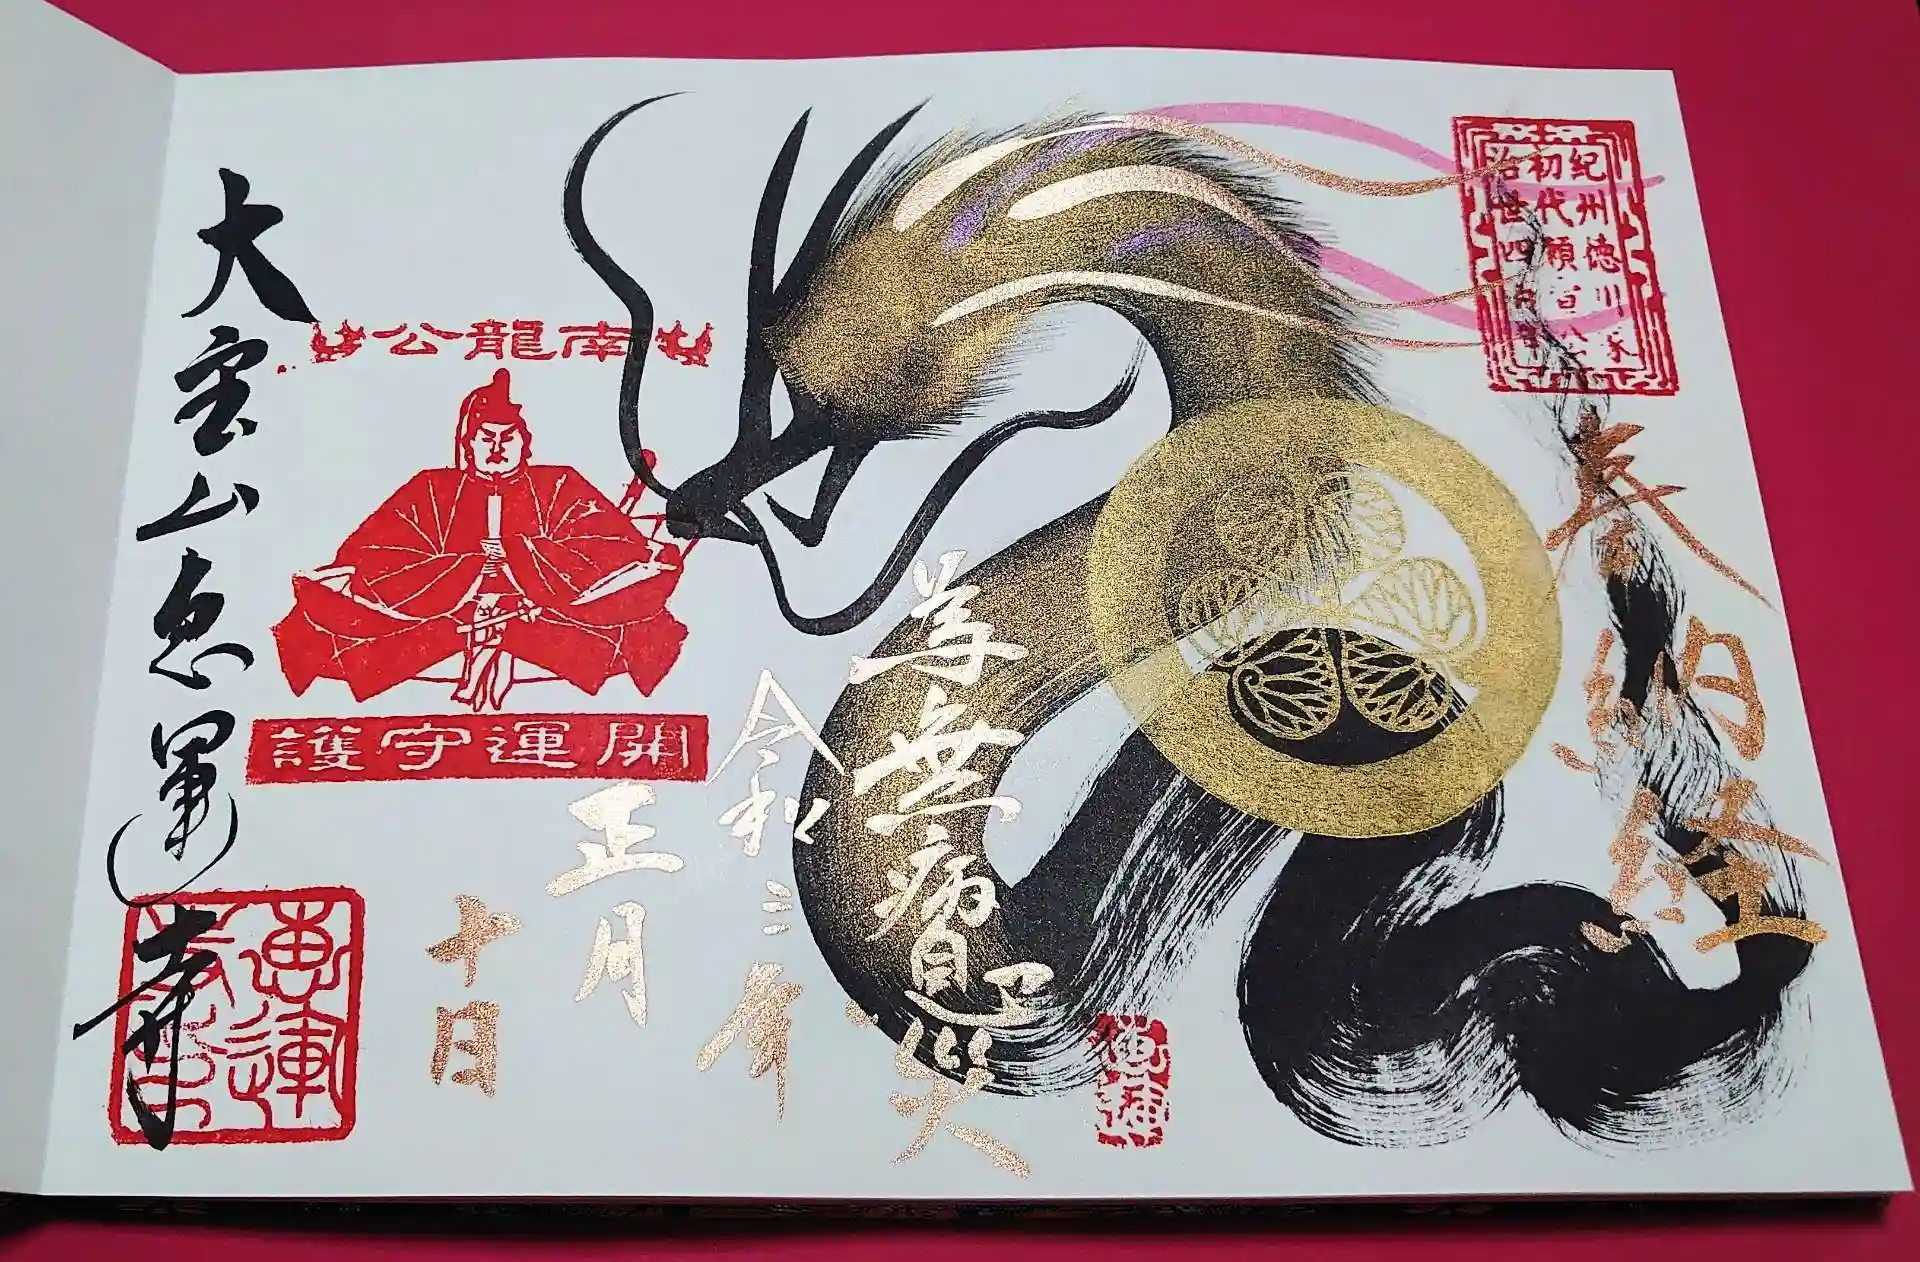 紀州徳川家
初代頼宣公
治世四百年
奉納経
為無病
災
令和三年
正月
十日
南龍公
開運守護
大雲山恵運寺